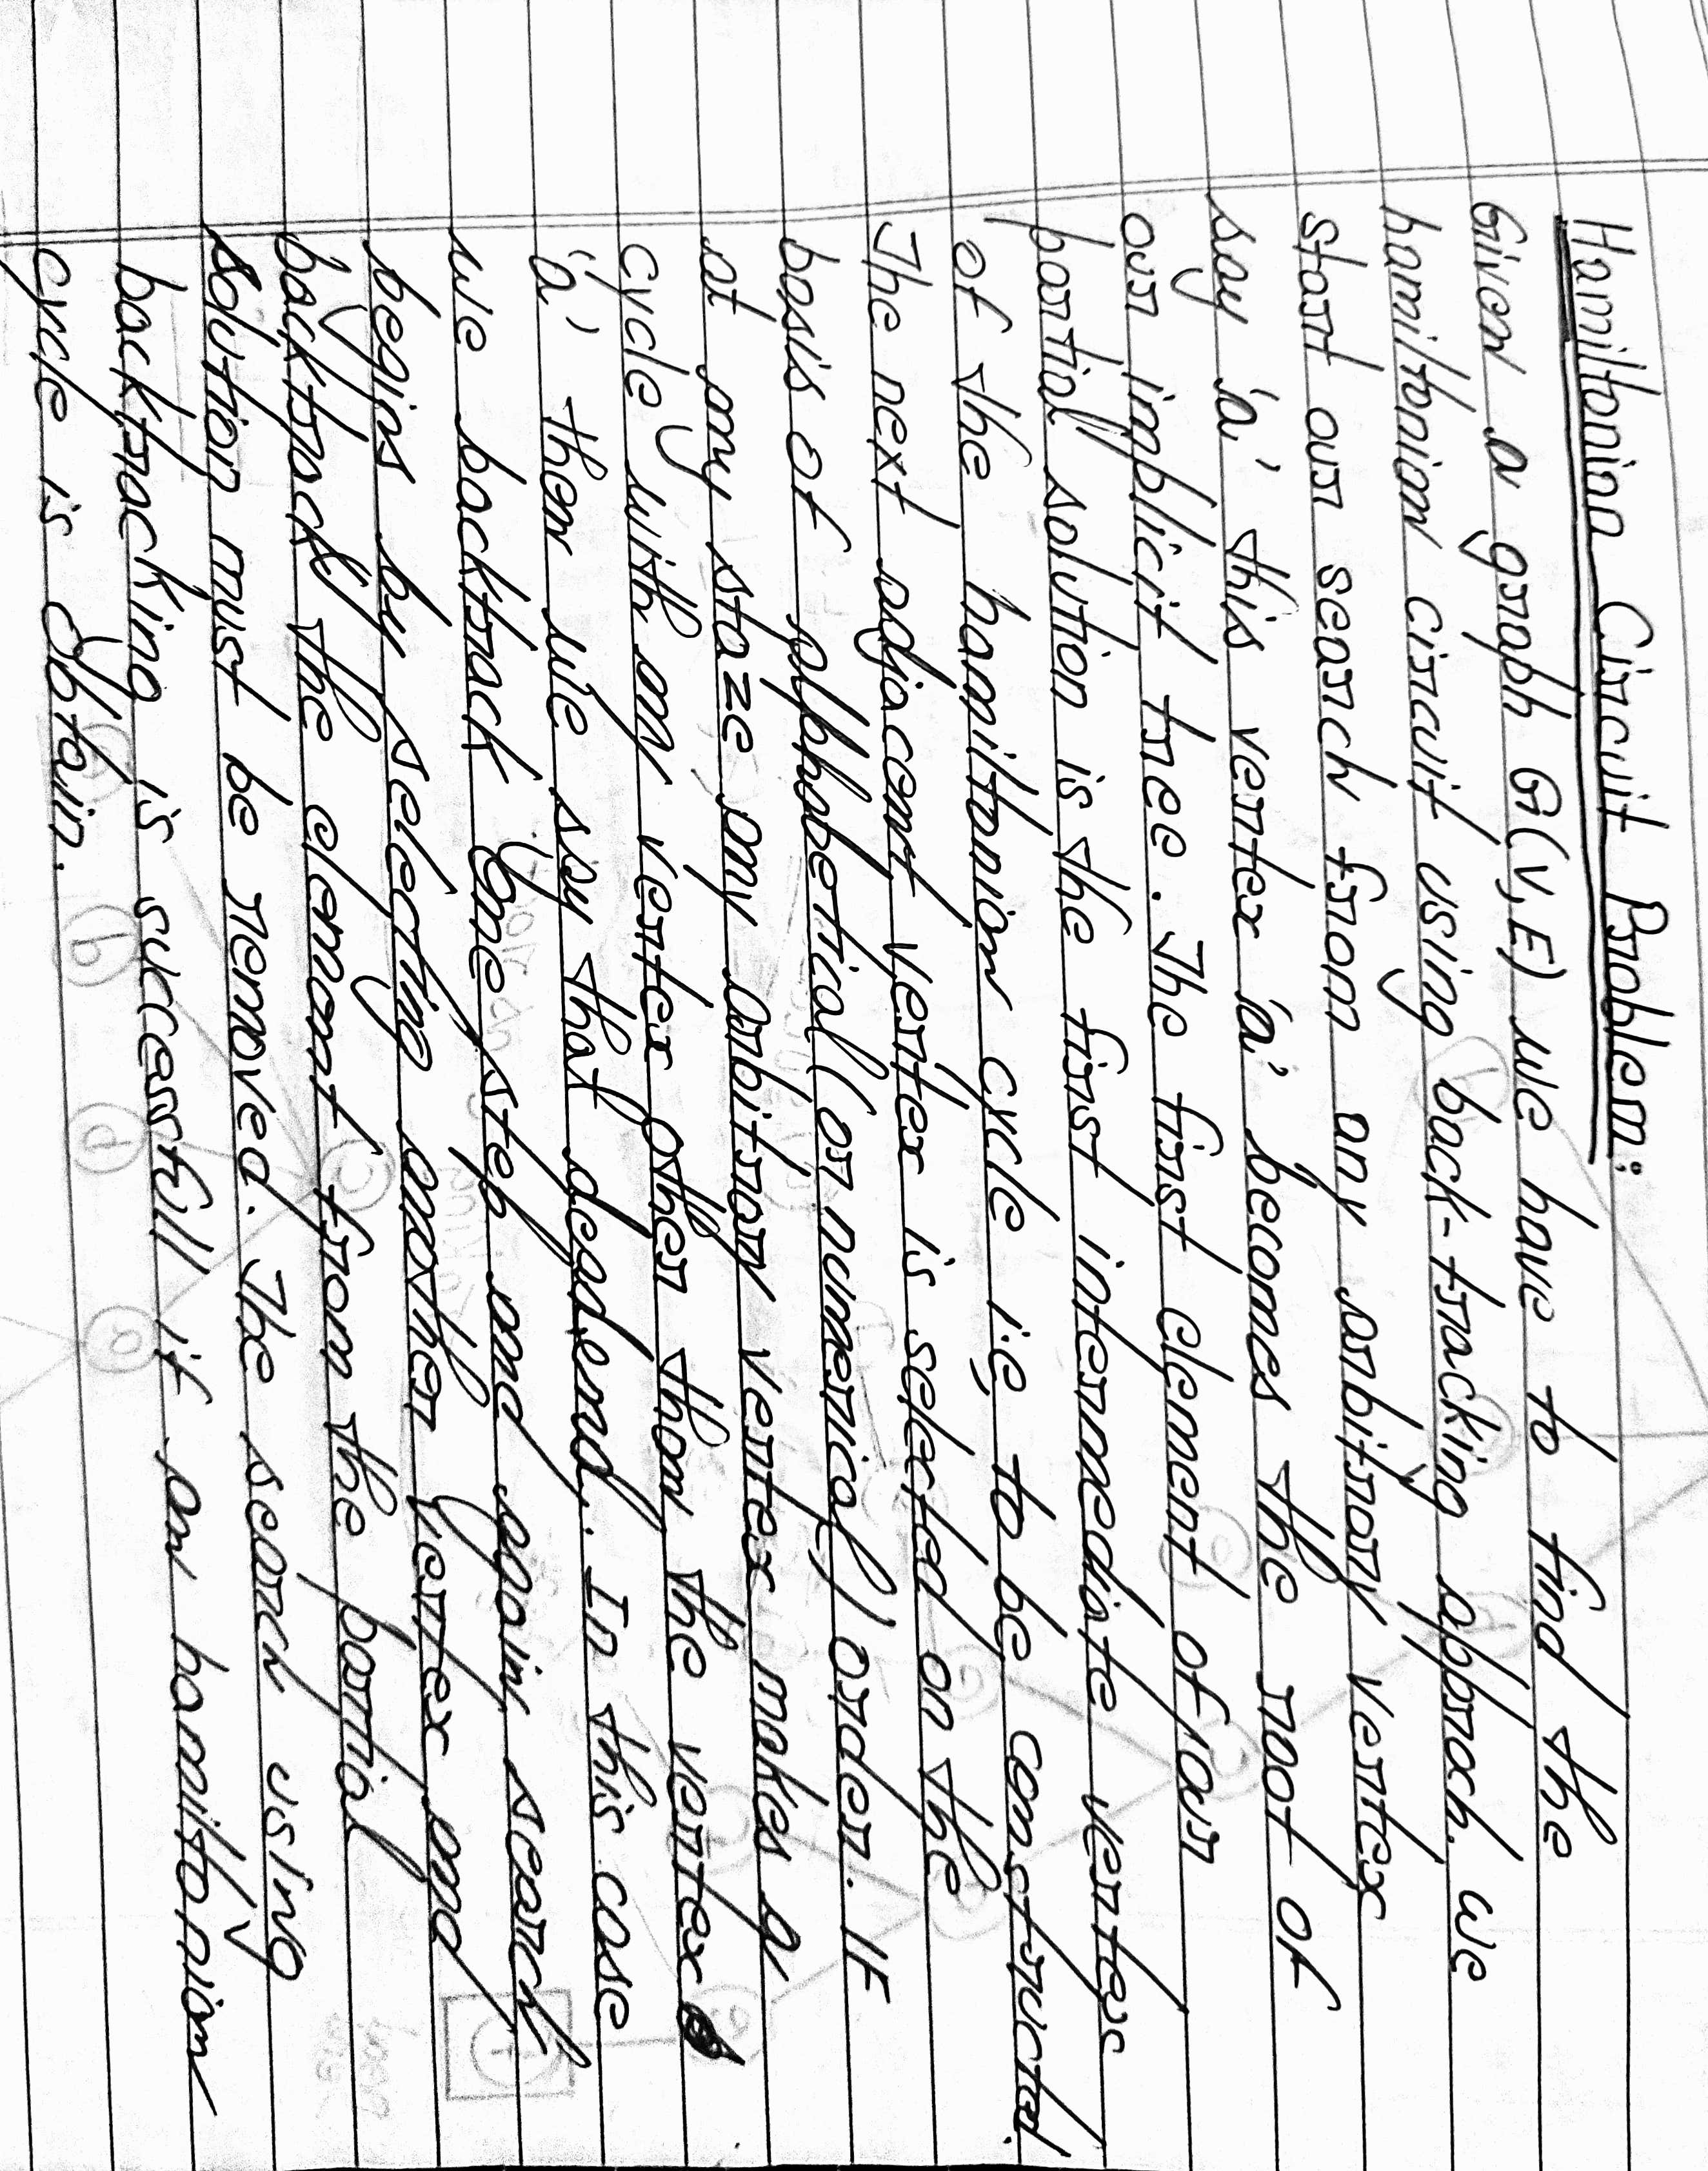 Hamiltonian Circuit Problem:
Given a graph G(V,E) we have to find the
hamiltonian circuit using back-tracking approch. we
start our search from any arbitrary vertex
say 'a' this vertex 'a' becomes the root of
our implicit tree. The first element of our
partial solution is the first intermediate vertex
of the hamiltonian cycle i.e to be constructed.
The next adjacent vertex is selected on the
basis of alphabetical (or numerical) order. If
at any staze any arbitrary vertex makes a
cycle with any vertex other than the vertex
'a' then we say that deadend. In this case
we backtrack one step and again search
begins by selecting another vertex and
backtrack the element from the partial
solution must be removed. The search using
backtracking is successfull if an hamiltonian
cycle is Obtain.